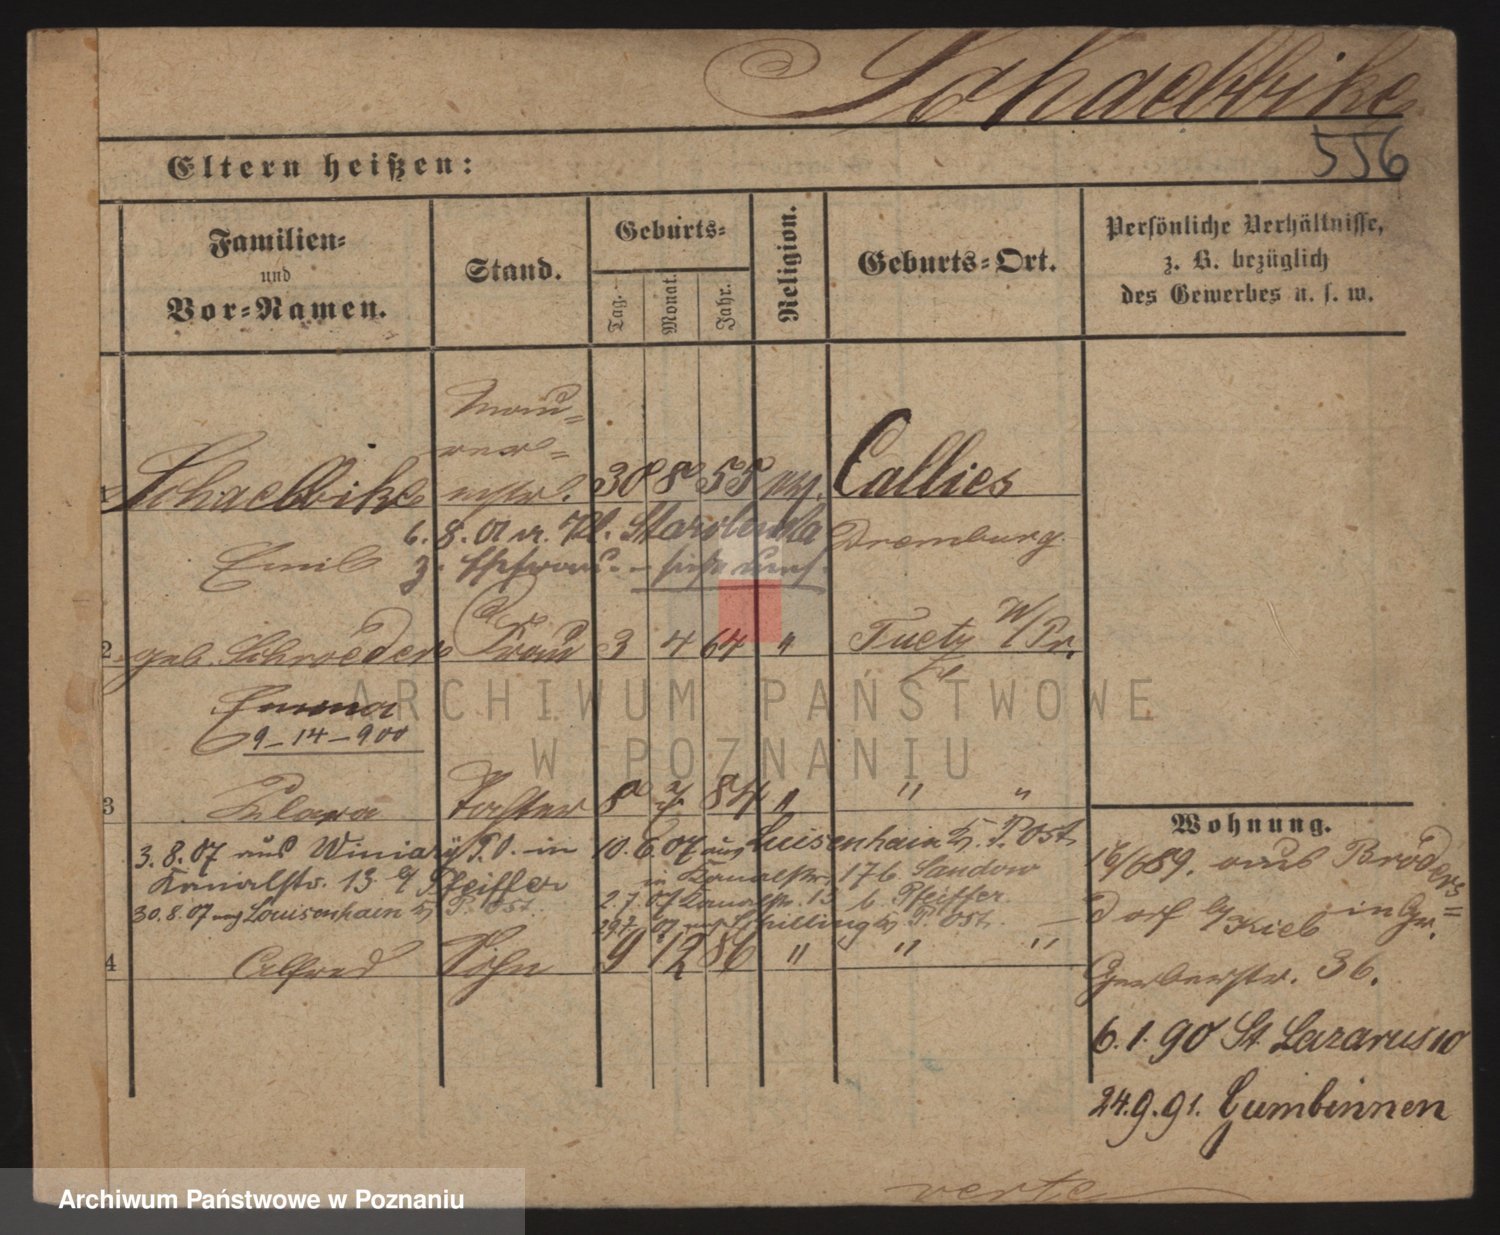 Schaebbike
556
Eltern heißen:
Familien-
und
Vor-Namen.
Stand.
Geburts-
Tag.
Monat.
Jahr.
Religion.
Geburts-Ort.
Persönliche Verhältnisse,
z. B. bezüglich
des Gewerbes u. s. w.
1 Schaebbike Mau-
rer-
mstr. 30 8 55 Callies
6. 8. 01 v. Kl. Starolenka Dramburg.
Emil z. Ehefrau
2 geb. Schroeder Frau 3 4 64 " Tuetz W/Pr.
Emma
9-14-900
3 Klara Tochter 8 7 84 " " "
3. 8. 07 aus Winiary P. O. in 10. 6. 07 aus Luisenhain Kr. P. Ost
Kanalstr. 13 b/ Pfeiffer in Kanalstr. 17 b. Sandow
30. 8. 07 nach Louisenhain Kr. P. Ost. 2. 7. 07 Kanalstr. 13 b. Pfeiffer.
29. 7. 07 nach Schilling Kr P. Ost.
4 Alfred Sohn 9 12 86 " " "
Wohnung.
16/6 89. aus Bröders-
dorf b/Kieb in Gr.
Gerberstr. 36.
6. 1. 90 St. Lazarus 10
24. 9. 91. Gumbinnen
verte
ARCHIWUM PAŃSTWOWE
W POZNANIU
Archiwum Państwowe w Poznaniu